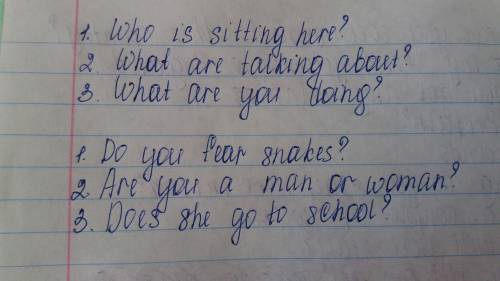 1. Who is sitting here?
2. What are talking about?
3. What are you doing?
1. Do you fear snakes?
2. Are you a man or woman?
3. Does she go to school?